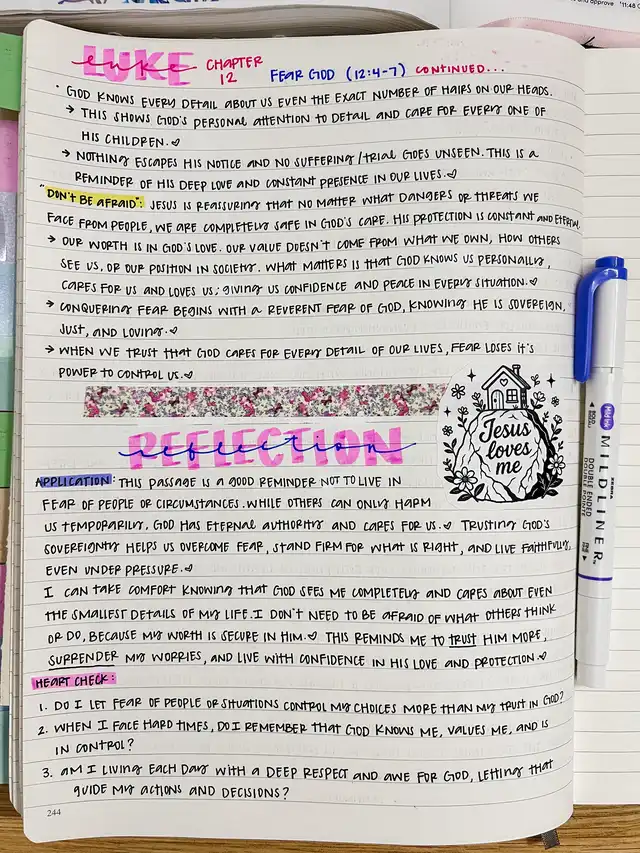 LUKE
luke
CHAPTER
12
FEAR GOD (12:4-7) CONTINUED...
• GOD KNOWS EVERY DETAIL ABOUT US EVEN THE EXACT NUMBER OF HAIRS ON OUR HEADS.
→ THIS SHOWS GOD'S PERSONAL ATTENTION TO DETAIL AND CARE FOR EVERY ONE OF
HIS CHILDREN.♡
→ NOTHING ESCAPES HIS NOTICE AND NO SUFFERING/TRIAL GOES UNSEEN. THIS IS A
REMINDER OF HIS DEEP LOVE AND CONSTANT PRESENCE IN OUR LIVES.♡
"DON'T BE AFRAID": JESUS IS REASSURING THAT NO MATTER WHAT DANGERS OR THREATS WE
FACE FROM PEOPLE, WE ARE COMPLETELY SAFE IN GOD'S CARE. HIS PROTECTION IS CONSTANT AND ETERNAL.
→ OUR WORTH IS IN GOD'S LOVE. OUR VALUE DOESN'T COME FROM WHAT WE OWN, HOW OTHERS
SEE US, OR OUR POSITION IN SOCIETY. WHAT MATTERS IS THAT GOD KNOWS US PERSONALLY,
CARES FOR US AND LOVES US; GIVING US CONFIDENCE AND PEACE IN EVERY SITUATION.♡
→ CONQUERING FEAR BEGINS WITH A REVERENT FEAR OF GOD, KNOWING HE IS SOVEREIGN,
JUST, AND LOVING.♡
→ WHEN WE TRUST THAT GOD CARES FOR EVERY DETAIL OF OUR LIVES, FEAR LOSES IT'S
POWER TO CONTROL US.♡
REFLECTION
reflection
Jesus
loves
me
APPLICATION: THIS PASSAGE IS A GOOD REMINDER NOT TO LIVE IN
FEAR OF PEOPLE OR CIRCUMSTANCES. WHILE OTHERS CAN ONLY HARM
US TEMPORARILY, GOD HAS ETERNAL AUTHORITY AND CARES FOR US.♡ TRUSTING GOD'S
SOVEREIGNTY HELPS US OVERCOME FEAR, STAND FIRM FOR WHAT IS RIGHT, AND LIVE FAITHFULLY,
EVEN UNDER PRESSURE.♡
I CAN TAKE COMFORT KNOWING THAT GOD SEES ME COMPLETELY AND CARES ABOUT EVEN
THE SMALLEST DETAILS OF MY LIFE. I DON'T NEED TO BE AFRAID OF WHAT OTHERS THINK
OR DO, BECAUSE MY WORTH IS SECURE IN HIM.♡ THIS REMINDS ME TO TRUST HIM MORE,
SURRENDER MY WORRIES, AND LIVE WITH CONFIDENCE IN HIS LOVE AND PROTECTION.♡
HEART CHECK:
1. DO I LET FEAR OF PEOPLE OR SITUATIONS CONTROL MY CHOICES MORE THAN MY TRUST IN GOD?
2. WHEN I FACE HARD TIMES, DO I REMEMBER THAT GOD KNOWS ME, VALUES ME, AND IS
IN CONTROL?
3. AM I LIVING EACH DAY WITH A DEEP RESPECT AND AWE FOR GOD, LETTING THAT
GUIDE MY ACTIONS AND DECISIONS?
244
Mild ink
MILDLINER
DOUBLE ENDED
ZEBRA
and approve